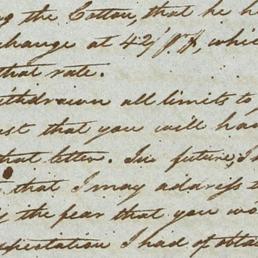 the Cotton, that he h
change at 42/ p. , whic
that rate.
withdrawn all limits to
est that you will ha
that letter. In future, I
that I may address t
the fear that you wo
expectation I had of obta